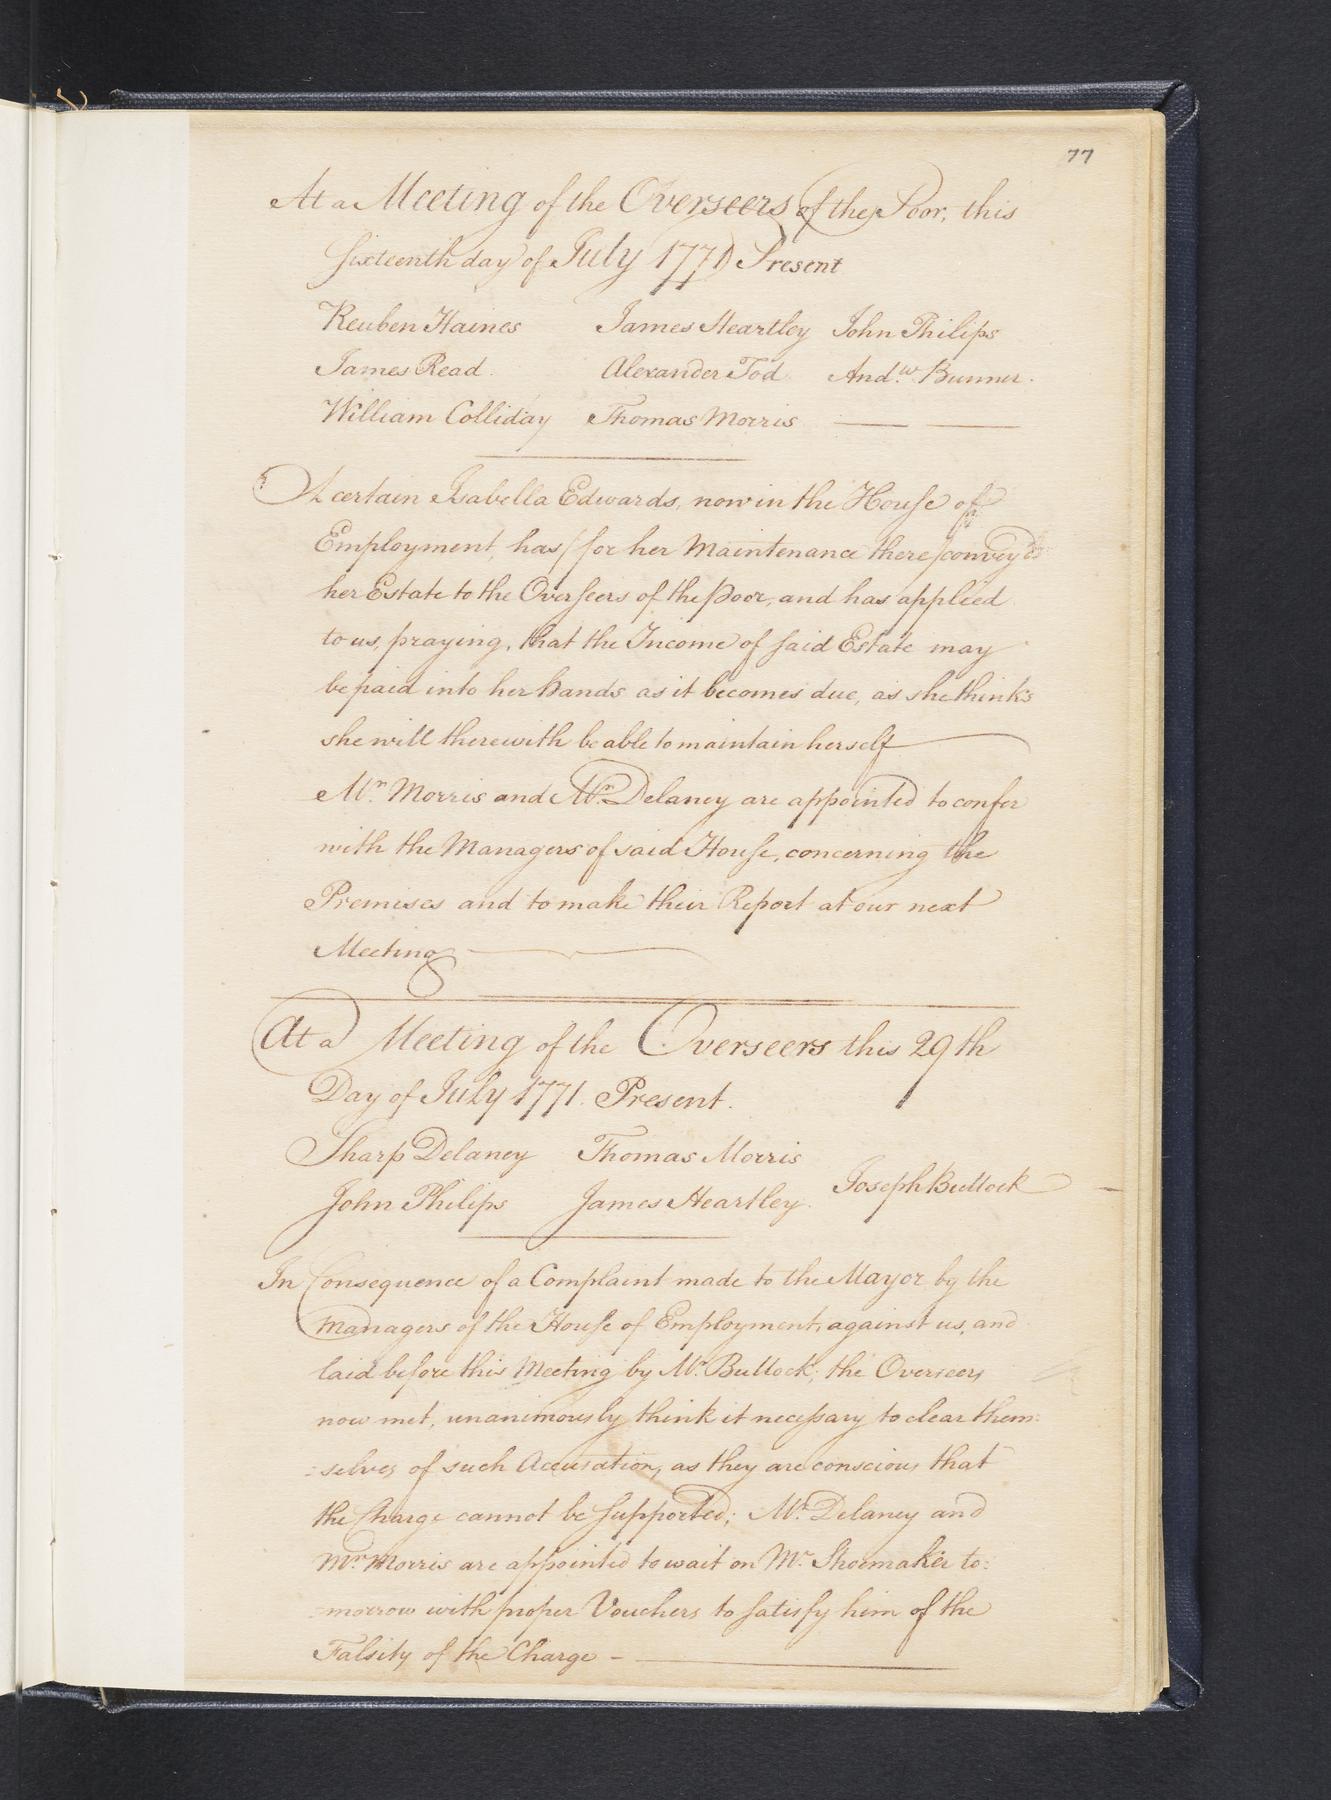 77
At a Meeting of the Overseers of the Poor, this
sixteenth day of July 1771 Present
Reuben Haines James Heartley John Philips
James Read. Alexander Tod And.w Bunner.
William Colliday Thomas Morris
A certain Isabella Edwards, now in the House of
Employment, has (for her Maintenance there) convey'd
her Estate to the Overseers of the Poor, and has applied
to us, praying, that the Income of said Estate may
be paid into her hands as it becomes due, as she thinks
she will therewith be able to maintain herself
Mr. Morris and Mr. Delaney are appointed to confer
with the Managers of said House, concerning the
Premises and to make their Report at our next
Meeting
At a Meeting of the Overseers this 29th
Day of July 1771. Present.
Sharp Delaney Thomas Morris
John Philips James Heartley. Joseph Bullock
In Consequence of a Complaint made to the Mayor by the
Managers of the House of Employment, against us, and
laid before this Meeting by Mr. Bullock; the Overseers
now met, unanimously think it necessary to clear them=
=selves of such Accusation, as they are conscious that
the Charge cannot be supported; Mr. Delaney and
Mr. Morris are appointed to wait on Mr. Shoemaker to=
=morrow with proper Vouchers to satisfy him of the
Falsity of the Charge -